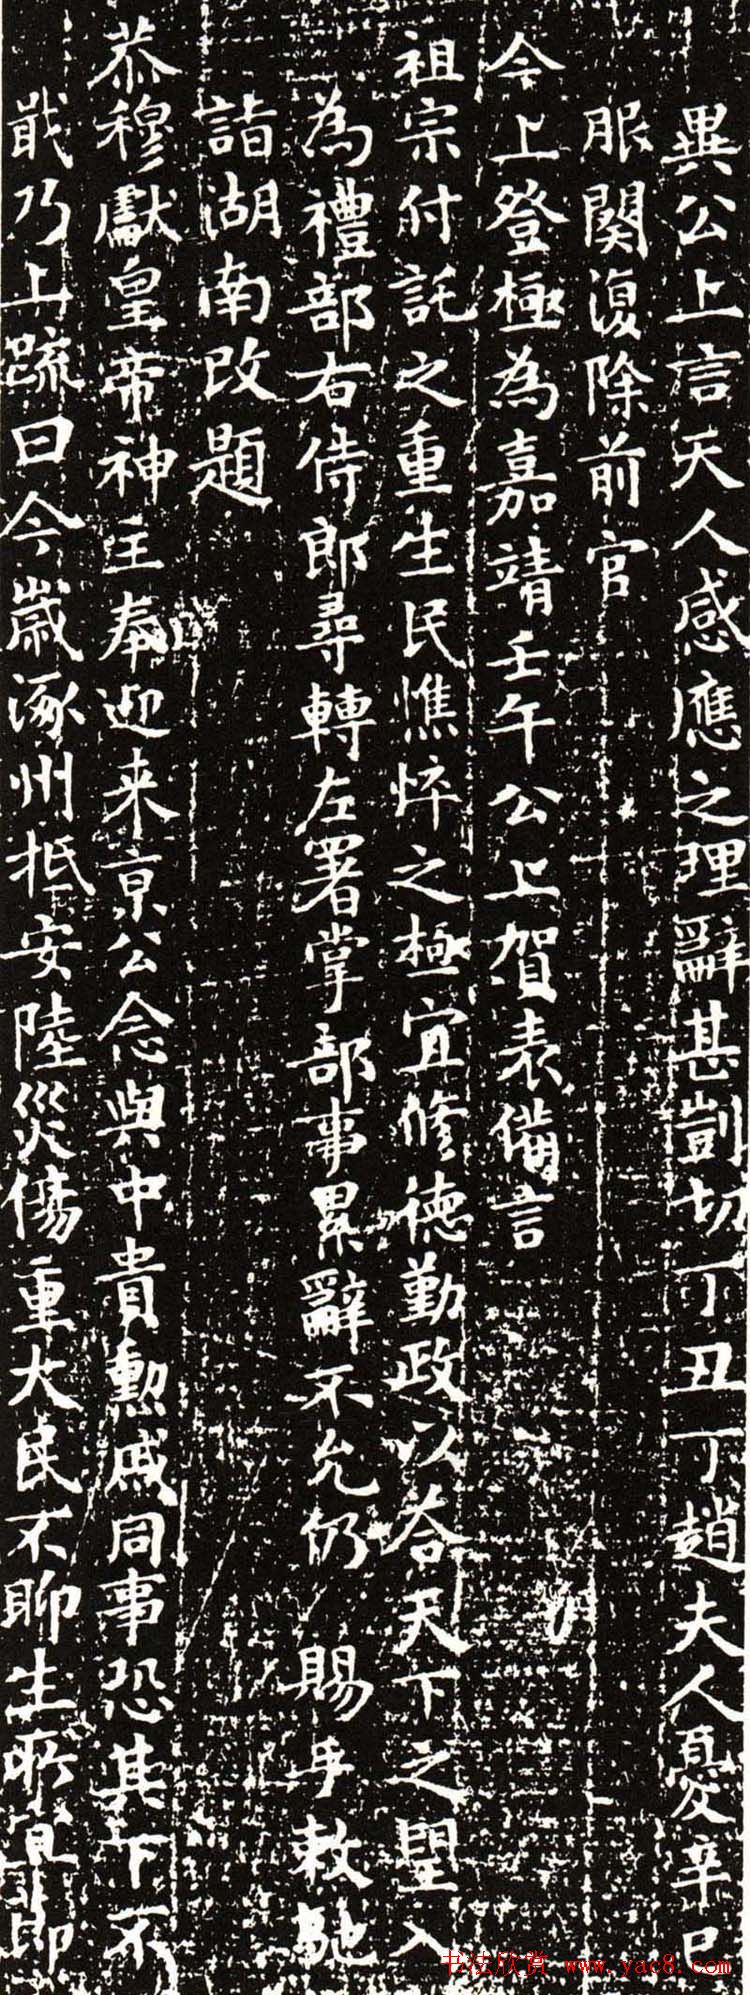 異公上言天人感應之理辭甚剴切丁丑丁趙夫人憂辛巳
服闋復除前官
今上登極為嘉靖壬午公上賀表備言
祖宗付託之重生民憔悴之極宜修德勤政以答天下之望入
為禮部右侍郎尋轉左署掌部事累辭不允仍 賜手敕馳
詣湖南改題
恭穆獻皇帝神主奉迎來京公念與中貴勲戚同事恐其下不
戢乃上疏曰今歲涿州抵安陸災傷重大民不聊生所宜即
书法欣赏 www.yac8.com